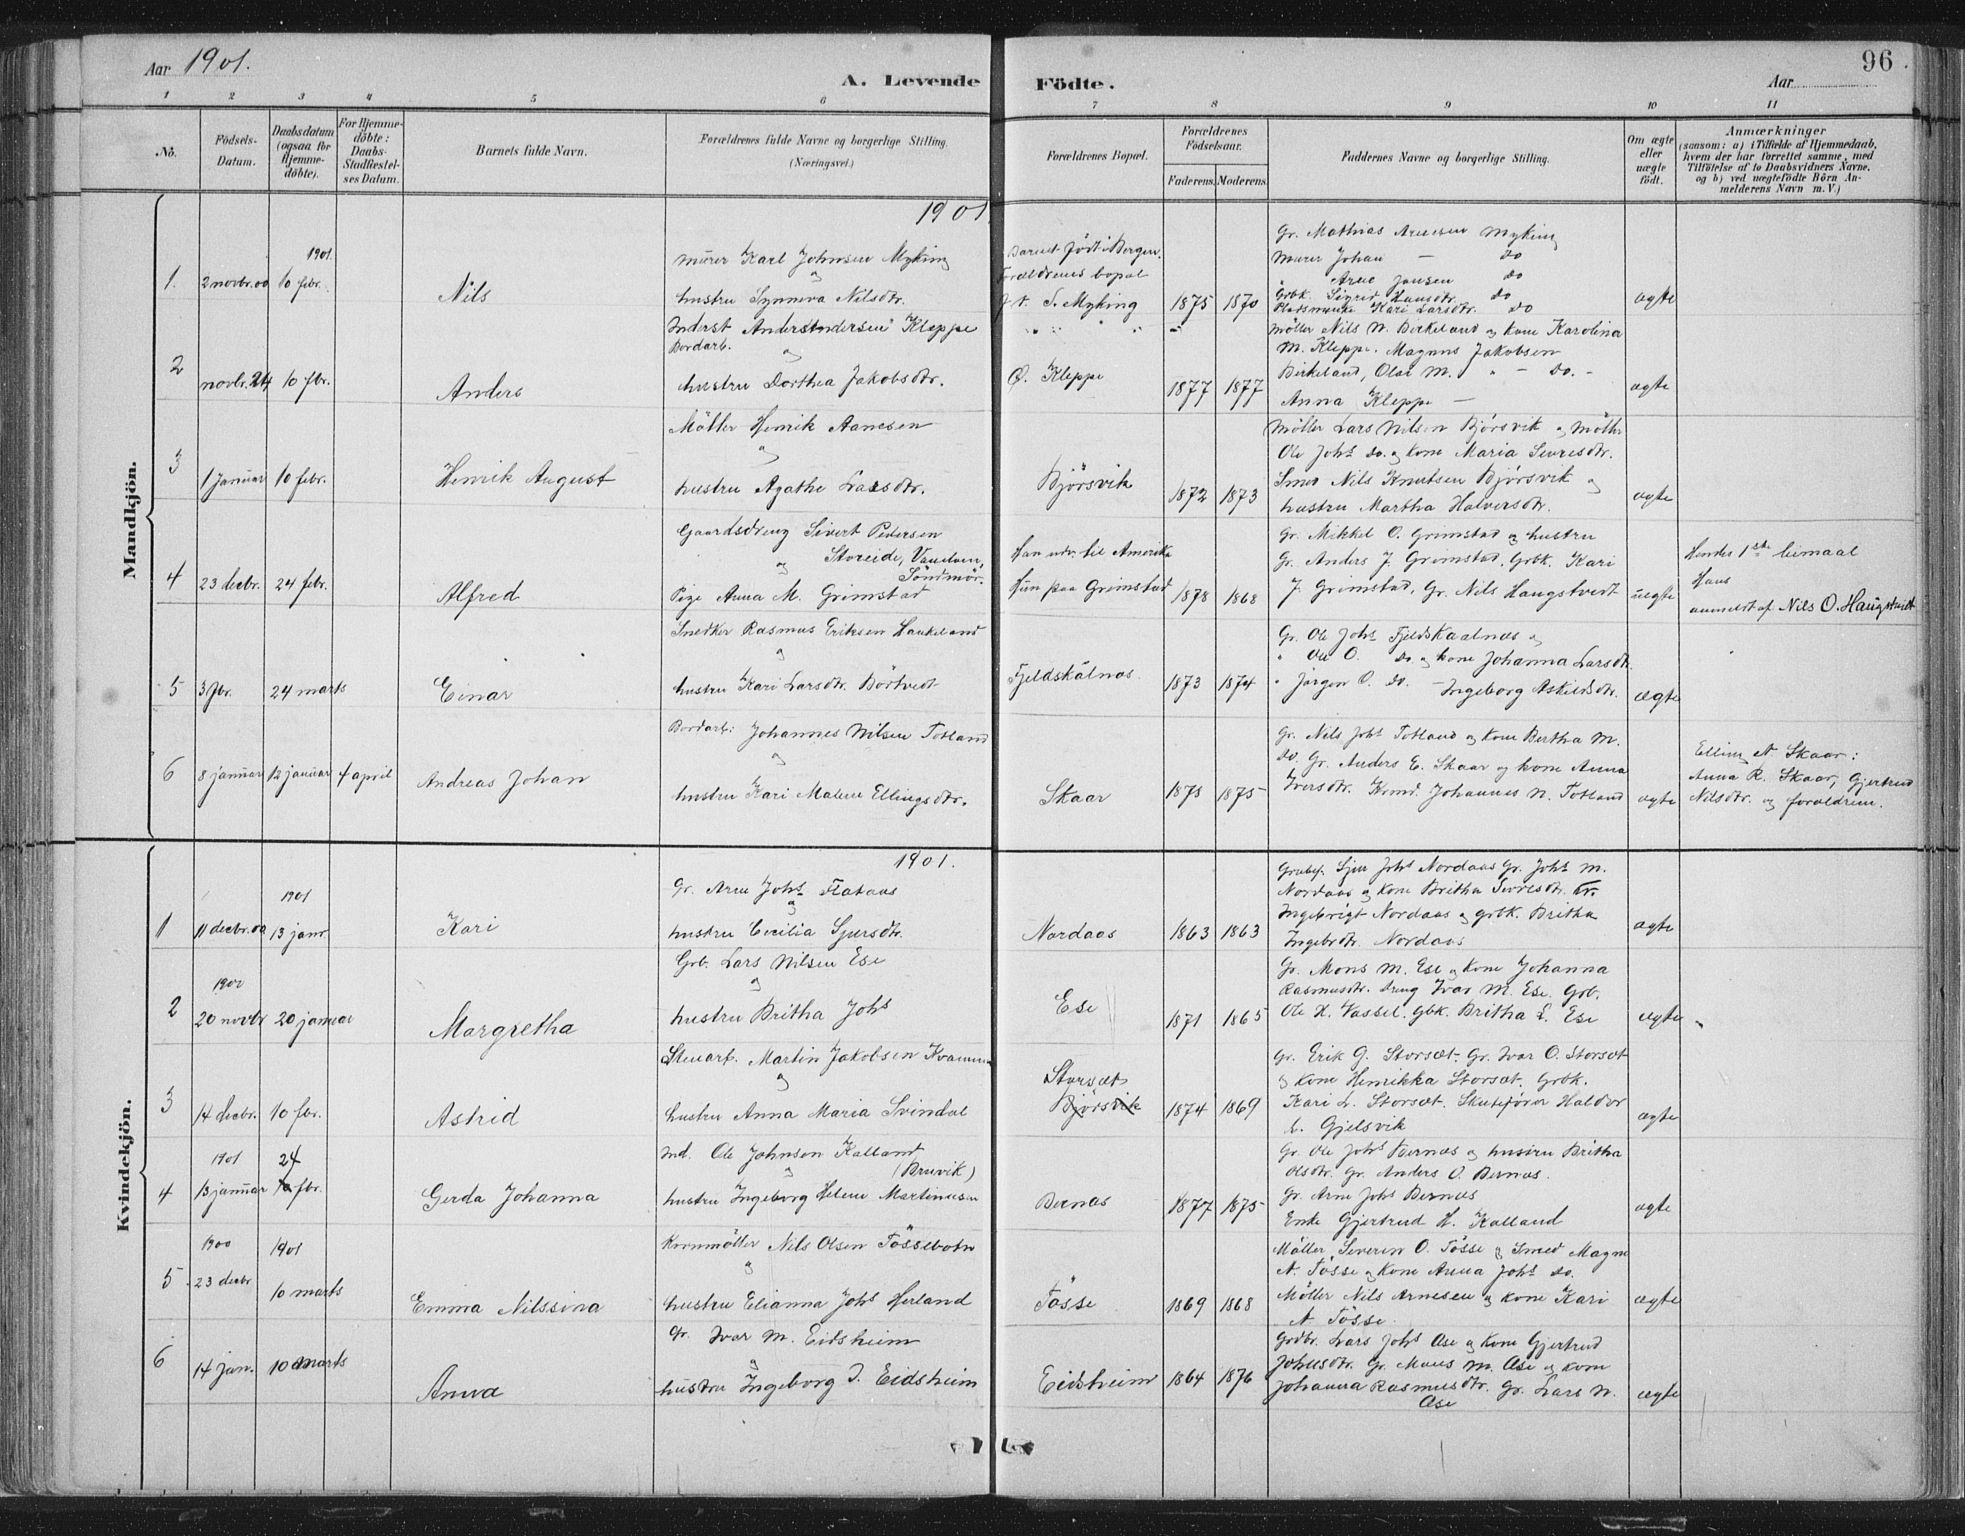 Aar 1901.
A. Levende Födte.
Aar
96.
1 2 3 4 5 6 7 8 9 10 11
No.
Födsels-Datum.
Daabsdatum (ogsaa for Hjemmedöbte).
For Hjemmedöbte: Daabs-Stadfæstelses Datum.
Barnets fulde Navn.
Forældrenes fulde Navne og borgerlige Stilling.
(Næringsvei.)
Forældrenes Bopæl.
Forældrenes Födselsaar.
Faderens. Moderens.
Faddernes Navne og borgerlige Stilling.
Om ægte eller uægte födt.
Anmærkninger
(saasom: a) i Tilfælde af Hjemmedaab,
hvem der har forrettet samme, med
Tilföielse af to Daabsvidners Navne,
og b) ved uægtefödte Börn An-
melderens Navn m. V.)
Mandkjön.
1901
1. 2 novbr. 00
1901
10 febr.
Nils
Murer Karl Johnsen Myking
og
hustru Synneva Nilsdtr.
Barnet födt i Bergen.
Forældrenes bopæl
p.t. S. Myking
1875 1870
Gr. Mathias Arnesen Myking
Murer Johan — do
" Arne Jansen do
Grbk. Sigrid Hansdtr. do
Kari Larsdtr. do
ægte
2 novbr. 24 10 fbr.
Anders
Inderst Anders Andersen Kleppe
Bordarb.
og
hustru Dorthea Jakobsdtr.
Ø. Kleppe
1877 1877
Möller Nils N. Birkeland og kone Karolina
M. Kleppe. Magnus Jakobsen
Birkeland, Olai M. " - do. -
Anna Kleppe —
ægte
3 1 januar 10 febr.
Henrik August
Möller Henrik Aanesen
og
hustru Agathe Larsdtr.
Björsvik
1872 1873
Möller Lars Nilsen Björsvik og möller
Ole Johs do. og kone Maria Sivresdtr.
Smed Nils Knutsen Björsvik og
hustru Martha Halversdtr.
ægte
4 23 decbr. 24 febr.
Alfred
Gaardsdreng Sivert Pedersen
Storeide, Vanelven,
og Söndmör.
Pige Anna M. Grimstad
Han udv. til Amerika
Hun paa Grimstad
1878 1868
Gr. Mikkel O. Grimstad og hustru
Gr. Anders J. Grimstad, Grbk. Kari
J. Grimstad, Gr. Nils Haugstvedt
uægte
Hendes 1ste leiemaal
Hans
anmeldt af Nils O. Haugstvedt
5 3 fbr. 24 marts
Einar
Snedker Rasmus Eriksen Haukeland
og
hustru Kari Larsdtr. Börtveit
Fjeldskålnæs.
1873 1874
Gr. Ole Johs Fjeldskaalnæs og
" Ole O. do. og kone Johanna Larsdtr.
" Jörgen O. do. — Ingeborg Askildsdtr.
ægte
6 8 januar 12 januar 4 april
Andreas Johan
Bordarb: Johannes Nilsen Totland
og
hustru Kari Malene Ellingsdtr.
Skaar
1878 1875
Gr. Nils Johs Totland og kone Bertha M.
do. Gr. Anders E. Skaar og kone Anna
Iversdtr. Johannes N. Totland
ægte
Elling A Skaar:
Anna R. Skaar, Gjertrud
Nilsdtr. og forældrene.
Kvindekjön.
1901.
1 11 decbr. 00
1901
13 janr.
Kari
Gr. Arne Johs Flataas
og
hustru Cecilia Sjursdtr.
Nordaas
1863 1863
Grubef. Sjur Johs Nordaas Gr. Johs M.
Nordaas og kone Britha Sivresdtr. Gr.
Ingebrigt Nordaas og grbk. Britha
Ingebrdtr. Nordaas
ægte
1900
2 20 novbr 20 januar
Margretha
Grb. Lars Nilsen Ese
og
hustru Britha Johs
Ese
1871 1865
Gr. Mons M. Ese og kone Johanna
Rasmusdtr. Dreng Ivar M. Ese. Grb.
Ole H. Vassel. gbk. Britha E. Ese
ægte
3 14 decbr. 10 fbr.
Astrid
Stenarb. Martin Jakobsen Kvamme
og
hustru Anna Maria Svindal
Storsæt
Björsvik
1874 1869
Gr. Erik G. Storsæt. Gr. Ivar O. Storsæt
og kone Henrikka Storsæt. Grbk.
Kari L. Storsæt. Skuteförer Haldor
L. Gjelsvik
ægte
1901
24
4 13 januar fbr.
Gerda Johanna
Ind. Ole Johnsen Kalland
og (Bruvik)
hustru Ingeborg Helene Martinusen
Bernæs
1877 1875
Gr. Ole Johs Bernæs og hustru Britha
Olsdtr. Gr. Anders O. Bernæs.
Gr. Arne Johs Bernæs
Enke Gjertrud H. Kalland
ægte
1900 1901
5 23 decbr 10 marts
Emma Nilssina
Kornmöller Nils Olsen Tössebotn
og
hustru Elianna Johs Herland
Tösse
1869 1868
Möller Severin O. Tösse og Smed Magne
N. Tösse og kone Anna Johs do.
Möller Nils Arnesen og kone Kari
N. Tösse
ægte
6 14 jan. 10 marts
Anna
Gr. Ivar M. Eidsheim
og
hustru Ingeborg I. Eidsheim
Eidsheim
1864 1876
Grdbr. Lars Johs Æse og kone Gjertrud
Johnsdtr. Gr. Mons M. Æse og kone
Johanna Rasmusdtr. Gr. Lars N.
Æse
ægte